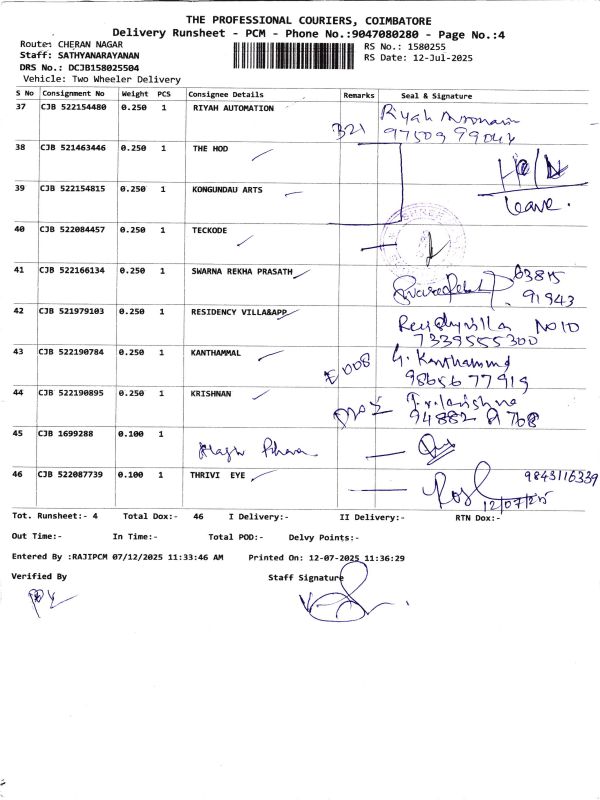 THE PROFESSIONAL COURIERS, COIMBATORE
Delivery Runsheet - PCM - Phone No.:9047080280 - Page No.:4
Route: CHERAN NAGAR
RS No.: 1580255
Staff: SATHYANARAYANAN
RS Date: 12-Jul-2025
DRS No.: DCJB158025504
Vehicle: Two Wheeler Delivery
S No Consignment No Weight PCS Consignee Details Remarks Seal & Signature
37 CJB 522154480 0.250 1 RIYAH AUTOMATION 321 Riyah
97509 99042
38 CJB 521463446 0.250 1 THE HOD
39 CJB 522154815 0.250 1 KONGUNDAU ARTS Leave.
40 CJB 522084457 0.250 1 TECKODE
41 CJB 522166134 0.250 1 SWARNA REKHA PRASATH 63815
91943
42 CJB 521979103 0.250 1 RESIDENCY VILLA&APP No 10
7339555300
43 CJB 522190784 0.250 1 KANTHAMMAL E008 G. Kanthammal
98656 77919
44 CJB 522190895 0.250 1 KRISHNAN
45 CJB 1699288 0.100 1
46 CJB 522087739 0.100 1 THRIVI EYE 9843116339
12/07/25
Tot. Runsheet:- 4 Total Dox:- 46 I Delivery:- II Delivery:- RTN Dox:-
Out Time:- In Time:- Total POD:- Delvy Points:-
Entered By :RAJIPCM 07/12/2025 11:33:46 AM Printed On: 12-07-2025 11:36:29
Verified By Staff Signature